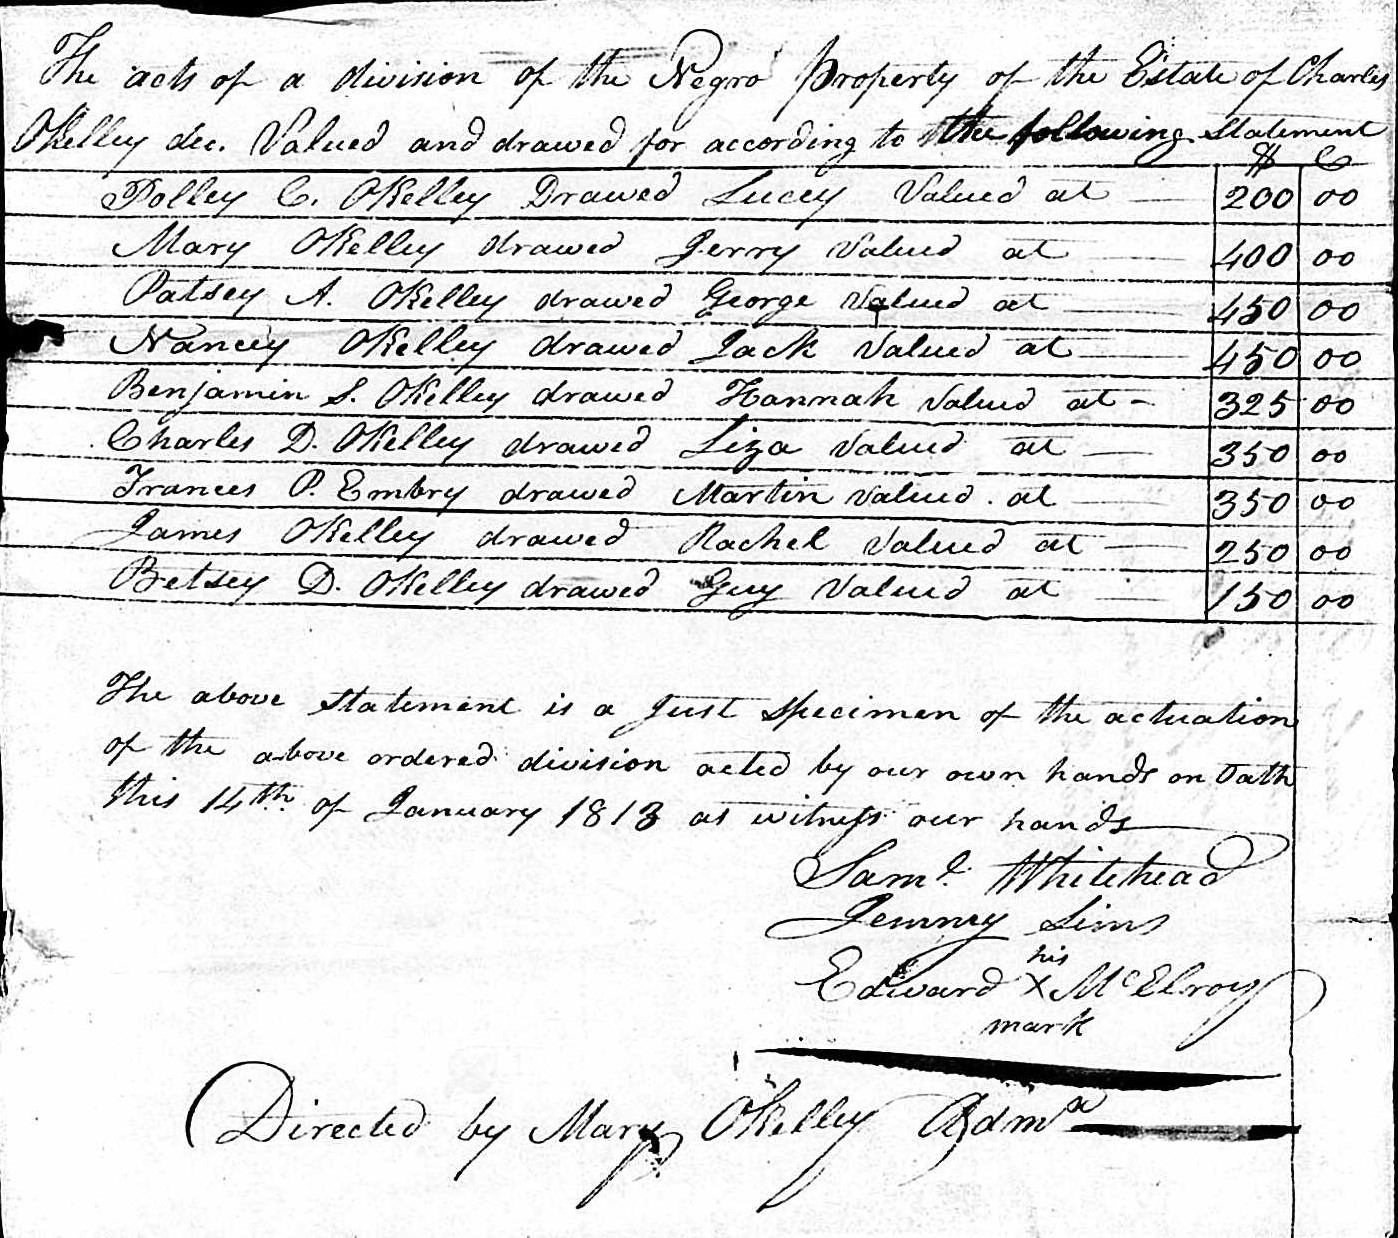 The acts of a division of the Negro Property of the Estate of Charles
OKelley dec. Valued and drawed for according to the following Statement
$ C
Polley C. OKelley Drawed Lucey Valued at 200 00
Mary OKelley drawed Jerry Valued at 400 00
Patsey A. OKelley drawed George Valued at 450 00
Nancey OKelley drawed Jack Valued at 450 00
Benjamin S. OKelley drawed Hannah Valued at 325 00
Charles D. OKelley drawed Liza Valued at 350 00
Frances P. Embry drawed Martin Valued at 350 00
James OKelley drawed Rachel Valued at 250 00
Betsey D. OKelley drawed Guy Valued at 150 00
The above statement is a Just Specimen of the actuation
of the above ordered division acted by our own hands on Oath
this 14th of January 1813 as witness our hands
Saml. Whitehead
Jemmey Sims
his
Edward X McElroy
mark
Directed by Mary OKelley Adma